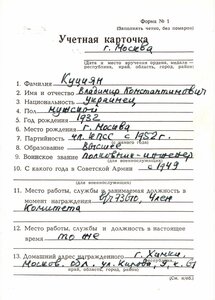 Форма № 1
(Заполнять четко, без помарок)
Учетная карточка
г. Москва
(Дата и место вручения ордена, медали —
республика, край, область, город, район)
1. Фамилия
2. Имя и отчество Владимир Константинович
3. Национальность Украинец
4. Пол мужской
5. Год рождения 1932
6. Место рождения г. Москва
7. Партийность чл. КПСС с 1952 г.
8. Образование Высшее
9. Воинское звание полковник-инженер
(для военнослужащих)
10. С какого года в Советской Армии с 1949
(для военнослужащих)
11. Место работы, службы и занимаемая должность в
момент награждения Член
Комитета
12. Место работы, службы и должность в настоящее
время то же
13. Домашний адрес награжденного г. Химки,
республика,
Москов. обл. ул. Кирова,
край, область, город, район
(См. н/об.)